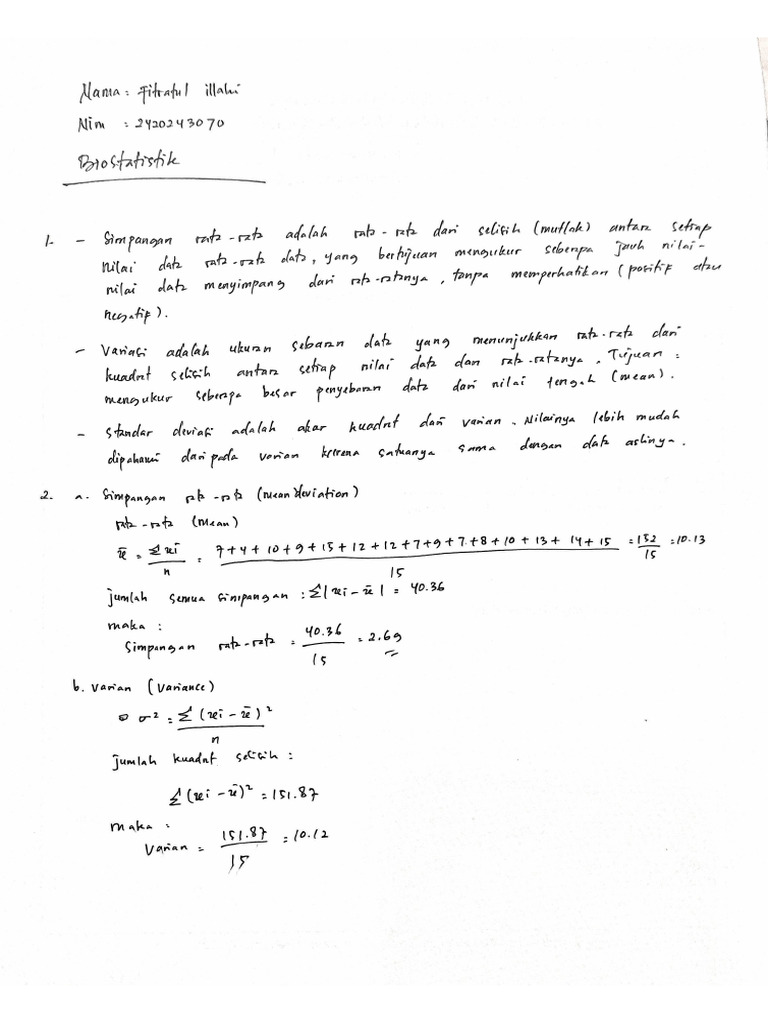 Nama : Fitratul illahi
Nim : 2420243070
Biostatistik
1. - Simpangan rata-rata adalah rata-rata dari selisih (mutlak) antara setiap
nilai data rata-rata data, yang bertujuan mengukur seberapa jauh nilai-
nilai data menyimpang dari rata-ratanya, tanpa memperhatikan (positif atau
negatif).
- Variasi adalah ukuran sebaran data yang menunjukkan rata-rata dari
kuadrat selisih antara setiap nilai data dan rata-ratanya, Tujuan :
mengukur seberapa besar penyebaran data dari nilai tengah (mean).
- Standar deviasi adalah akar kuadrat dari varian. Nilainya lebih mudah
dipahami dari pada varian karena satuanya sama dengan data aslinya.
2. a. Simpangan rata-rata (mean deviation)
rata-rata (mean)
x̄ = Σxi / n = 7+4+10+9+15+12+12+7+9+7+8+10+13+14+15 / 15 = 152 / 15 = 10.13
jumlah semua simpangan : Σ|xi - x̄| = 40.36
maka :
Simpangan rata-rata = 40.36 / 15 = 2.69
b. Varian (Variance)
σ² = Σ(xi - x̄)² / n
jumlah kuadrat selisih :
Σ(xi - x̄)² = 151.87
maka :
Varian = 151.87 / 15 = 10.12